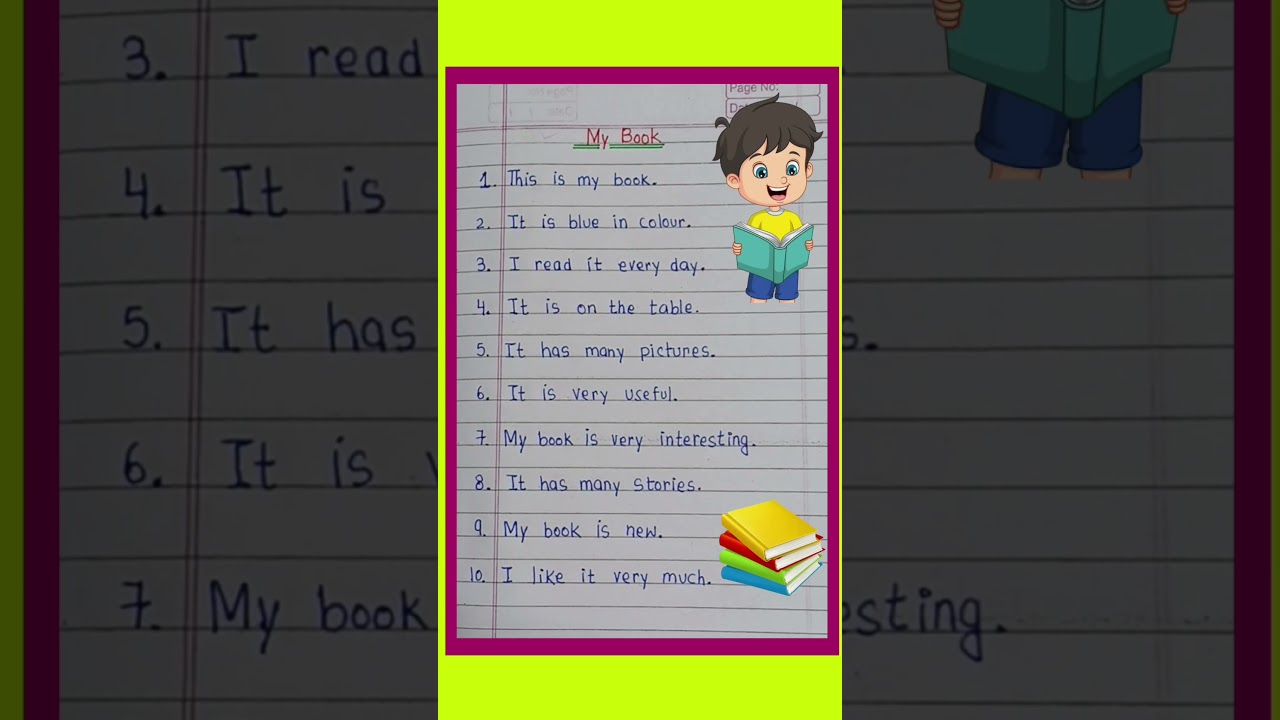 Page No:
My Book
1. This is my book.
2. It is blue in colour.
3. I read it every day.
4. It is on the table.
5. It has many pictures.
6. It is very useful.
7. My book is very interesting.
8. It has many stories.
9. My book is new.
10. I like it very much.
3. I read
4. It is
5. It has
6. It is
7. My book